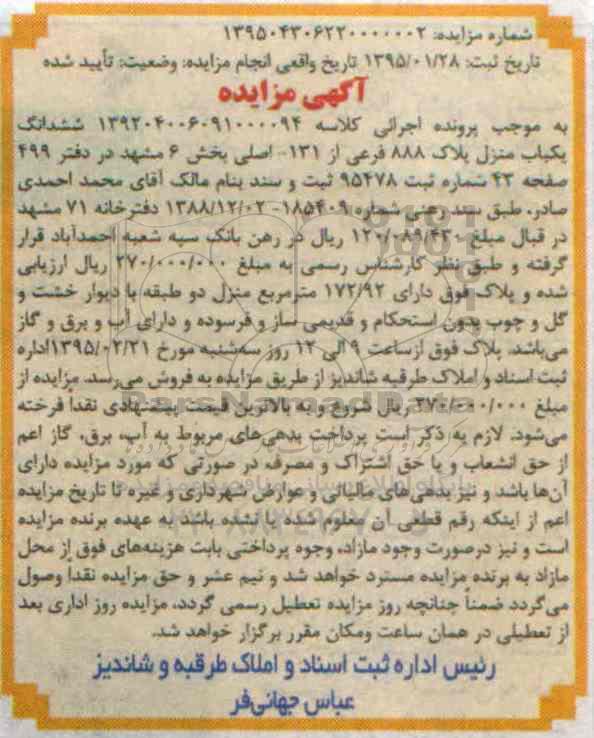 شماره مزایده: ۱۳۹۵۰۴۳۰۶۲۲۰۰۰۰۰۰۲
تاریخ ثبت: ۱۳۹۵/۰۱/۲۸ تاریخ واقعی انجام مزایده: وضعیت: تأیید شده
آگهی مزایده
به موجب پرونده اجرائی کلاسه ۱۳۹۲۰۴۰۰۶۰۹۱۰۰۰۰۹۴ ششدانگ
یکباب منزل پلاک ۸۸۸ فرعی از ۱۳۱- اصلی بخش ۶ مشهد در دفتر ۴۹۹
صفحه ۴۳ شماره ثبت ۹۵۴۷۸ ثبت و سند بنام مالک آقای محمد احمدی
صادر. طبق سند رهنی شماره ۱۸۵۴۰۹- ۱۳۸۸/۱۲/۰۲ دفترخانه ۷۱ مشهد
در قبال مبلغ ۱۲۰/۰۸۹/۴۳۰ ریال در رهن بانک سپه شعبه احمدآباد قرار
گرفته و طبق نظر کارشناس رسمی به مبلغ ۲۷۰/۰۰۰/۰۰۰ ریال ارزیابی
شده و پلاک فوق دارای ۱۷۲/۹۲ مترمربع منزل دو طبقه با دیوار خشت و
گل و چوب بدون استحکام و قدیمی ساز و فرسوده و دارای آب و برق و گاز
می‌باشد. پلاک فوق ازساعت ۹ الی ۱۲ روز سه‌شنبه مورخ ۱۳۹۵/۰۲/۲۱اداره
ثبت اسناد و املاک طرقبه شاندیز از طریق مزایده به فروش می‌رسد. مزایده از
مبلغ ۲۷۰/۰۰۰/۰۰۰ ریال شروع و به بالاترین قیمت پیشنهادی نقداً فرخته
می‌شود. لازم به ذکر است پرداخت بدهی‌های مربوط به آب، برق، گاز اعم
از حق انشعاب و یا حق اشتراک و مصرف در صورتی که مورد مزایده دارای
آن‌ها باشد و نیز بدهی‌های مالیاتی و عوارض شهرداری و غیره تا تاریخ مزایده
اعم از اینکه رقم قطعی آن معلوم شده یا نشده باشد به عهده برنده مزایده
است و نیز درصورت وجود مازاد، وجوه پرداختی بابت هزینه‌های فوق از محل
مازاد به برنده مزایده مسترد خواهد شد و نیم عشر و حق مزایده نقداً وصول
می‌گردد ضمناً چنانچه روز مزایده تعطیل رسمی گردد، مزایده روز اداری بعد
از تعطیلی در همان ساعت ومکان مقرر برگزار خواهد شد.
رئیس اداره ثبت اسناد و املاک طرقبه و شاندیز
عباس جهانی‌فر
ParsNamadData